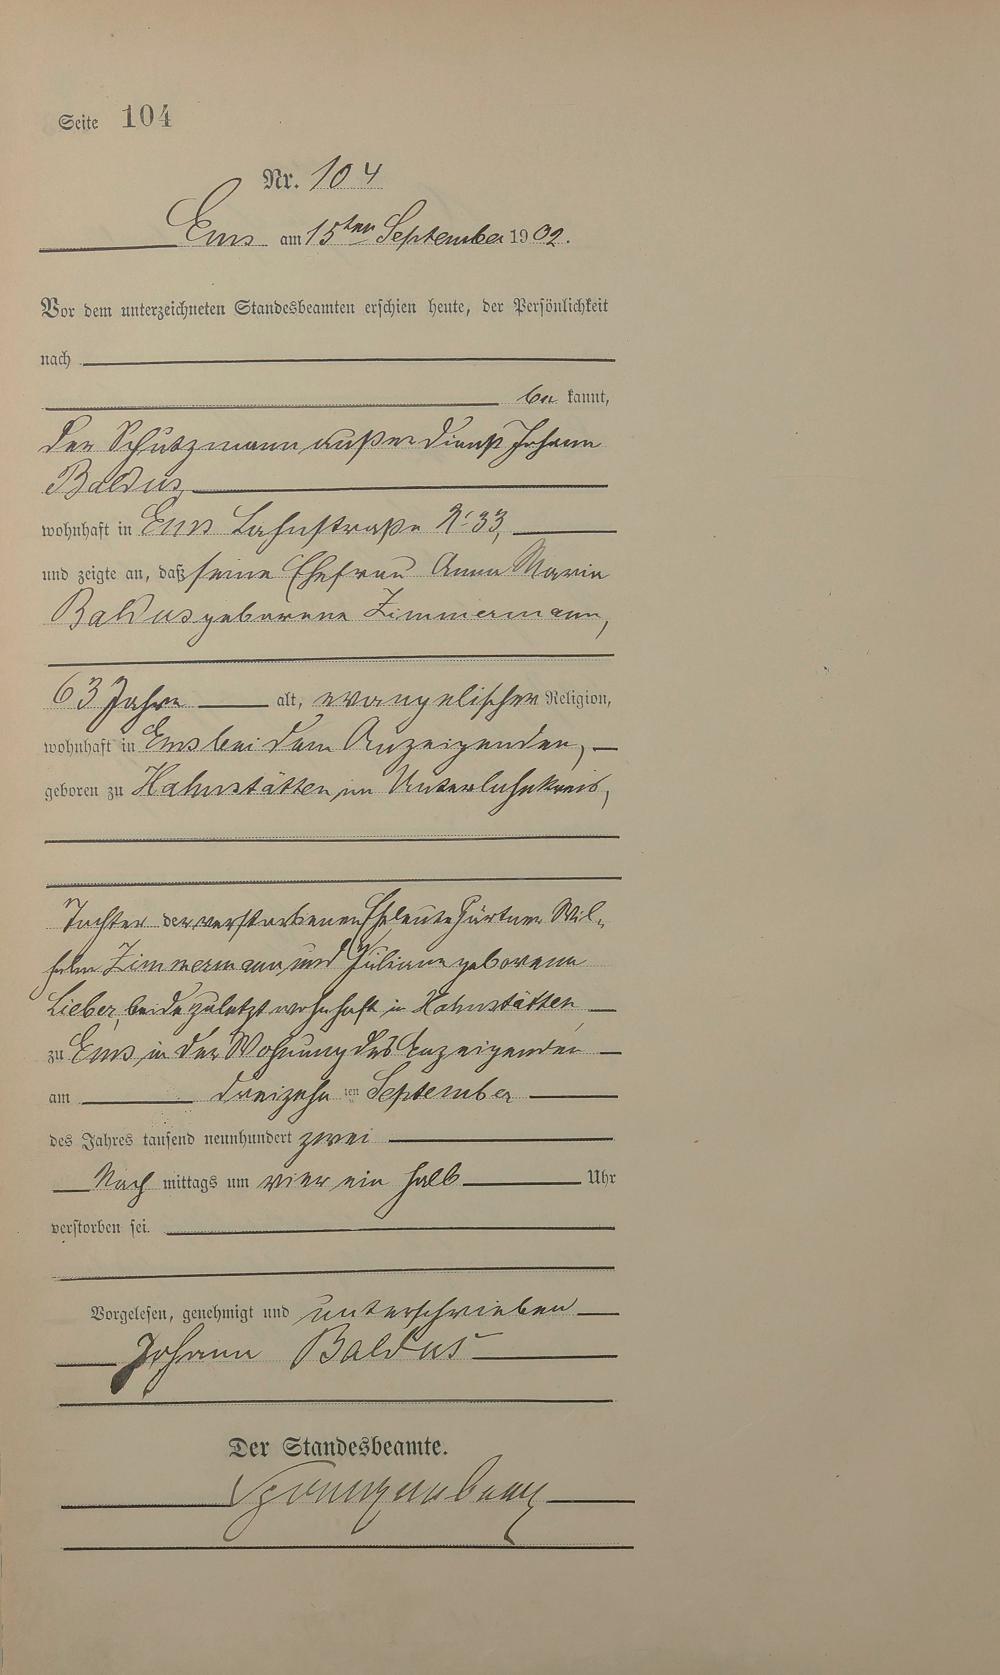 Seite 104
Nr. 104
Ems am 15ten September 1902.
Vor dem unterzeichneten Standesbeamten erschien heute, der Persönlichkeit
nach
be kannt,
der Schutzmann außer Dienst Johann
Baldus,
wohnhaft in Ems Lahnstraße No 33,
und zeigte an, daß seine Ehefrau Anna Maria
Baldus geborene Zimmermann,
63 Jahre alt, evangelischer Religion,
wohnhaft in Ems bei dem Anzeigenden,
geboren zu Hahnstätten im Unterlahnkreis,
Tochter der verstorbenen Eheleute Gärtner Wil-
helm Zimmermann und Juliane geborene
Lieber, beide zuletzt wohnhaft in Hahnstätten
zu Ems, in der Wohnung des Anzeigenden
am dreizehn ten September
des Jahres tausend neunhundert zwei
Nach mittags um vier ein halb Uhr
verstorben sei.
Vorgelesen, genehmigt und unterschrieben
Johann Baldus
Der Standesbeamte.